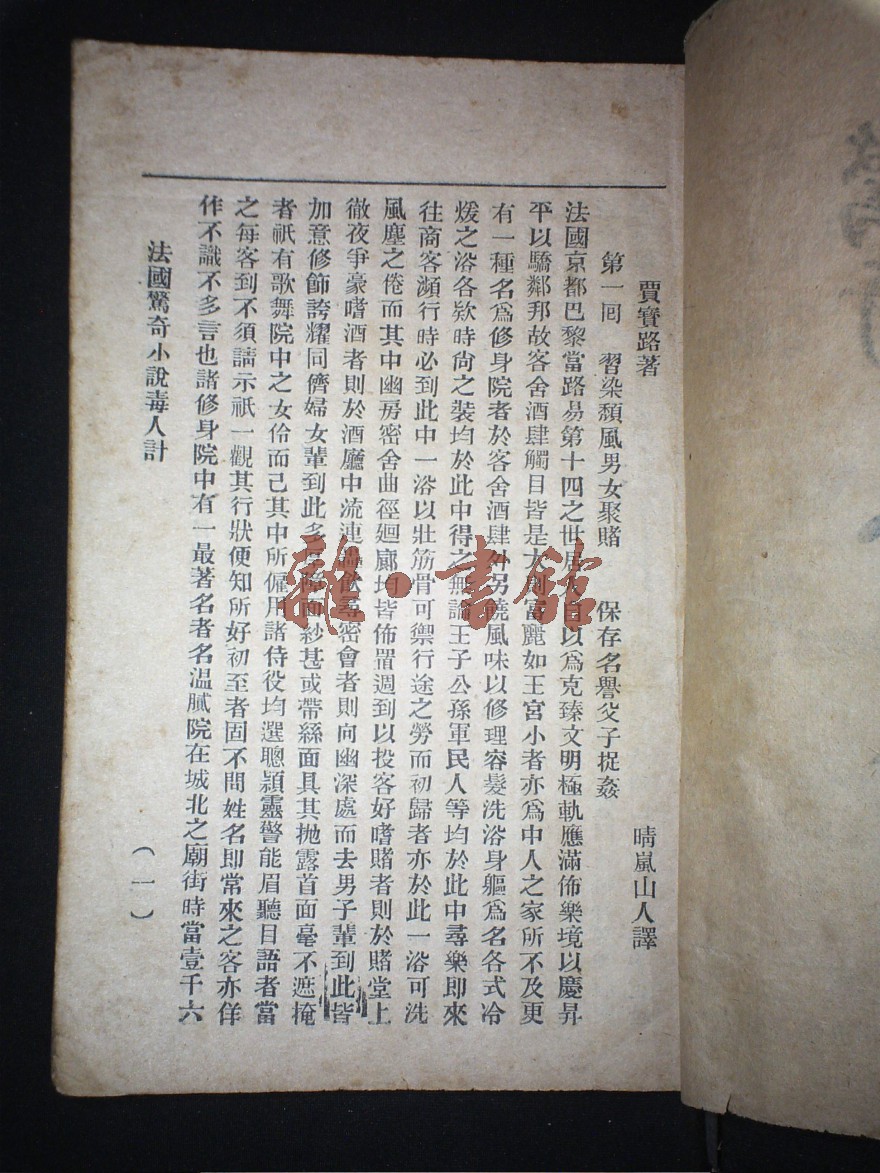 賈寶路著 晴嵐山人譯
第一回 習染頹風男女聚賭 保存名譽父子捉姦
法國京都巴黎當路易第十四之世居 自以爲克臻文明極軌應滿佈樂境以慶昇
平以驕鄰邦故客舍酒肆觸目皆是大 富麗如王宮小者亦爲中人之家所不及更
有一種名爲修身院者於客舍酒肆外另饒風味以修理容髮洗浴身軀爲名各式冷
煖之浴各欵時尙之裝均於此中得之無論王子公孫軍民人等均於此中尋樂即來
往商客瀕行時必到此中一浴以壯筋骨可禦行途之勞而初歸者亦於此一浴可洗
風塵之倦而其中幽房密舍曲徑廻廊均皆佈置週到以投客好嗜賭者則於賭堂上
徹夜爭豪嗜酒者則於酒廳中流連 飲尋密會者則向幽深處而去男子輩到此皆
加意修飾誇耀同儕婦女輩到此多 障面紗甚或帶絲面具其拋露首面毫不遮掩
者祇有歌舞院中之女伶而己其中所僱用諸侍役均選聰頴靈警能眉聽目語者當
之每客到不須請示祇一觀其行狀便知所好初至者固不問姓名即常來之客亦佯
作不識不多言也諸修身院中有一最著名者名温膩院在城北之廟街時當壹千六
法國驚奇小說毒人計
(一)
雜·書館